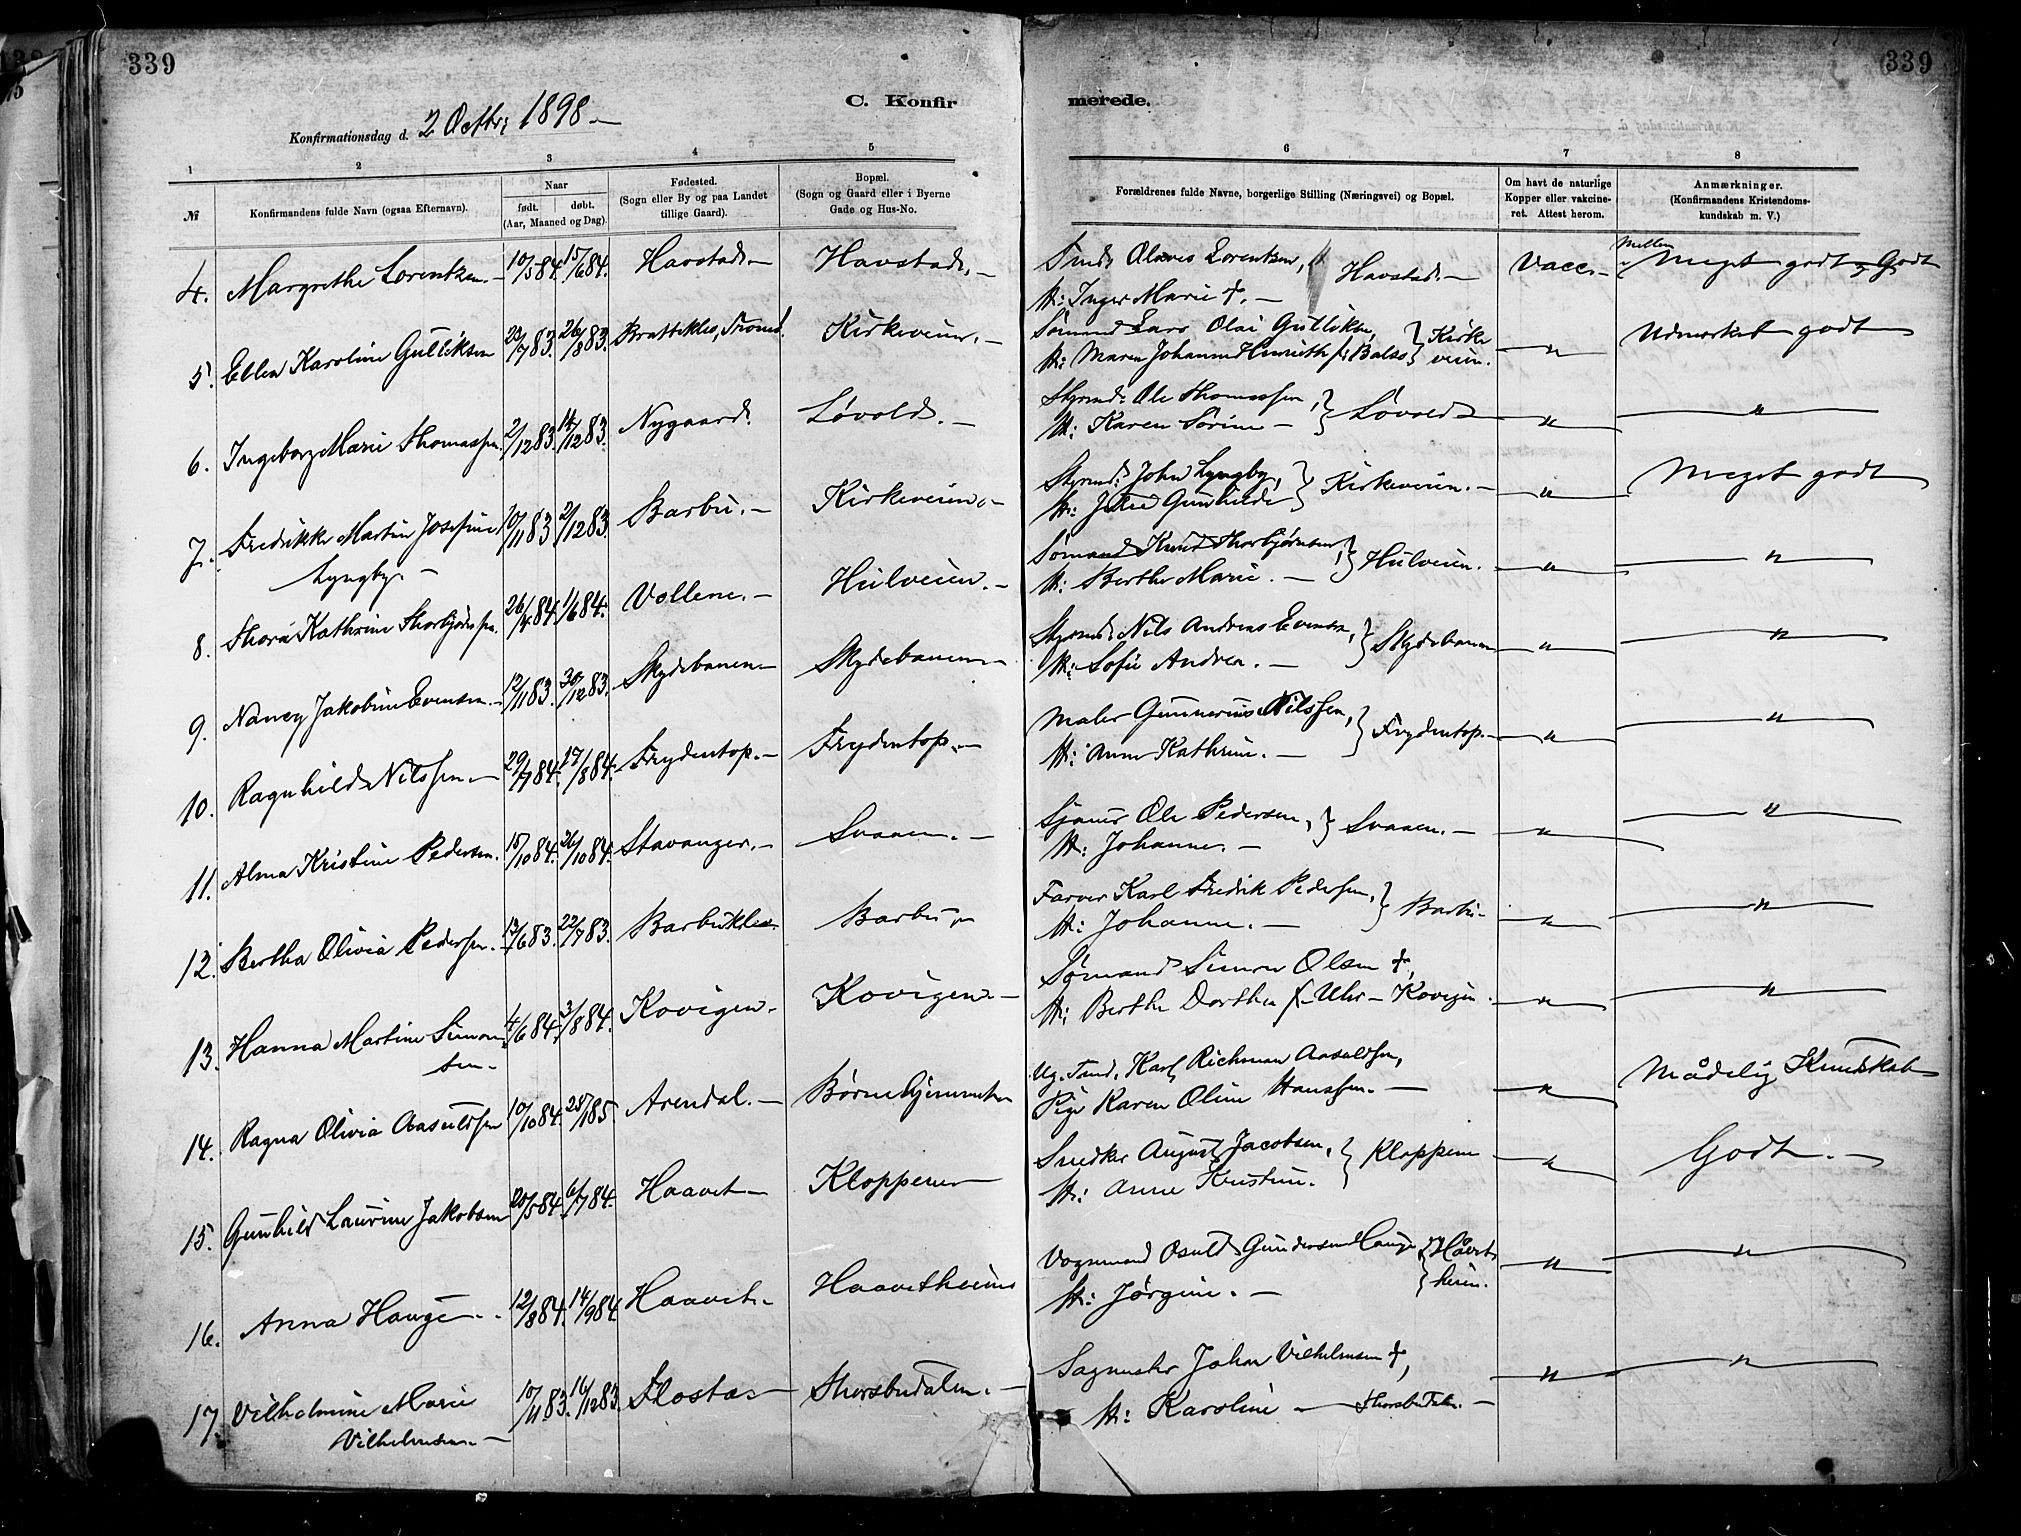 339
339
C. Konfirmerede.
Konfirmationsdag d. 2 Octbr 1898.
1 2 3 4 5 6 7 8
№
Konfirmandens fulde Navn (ogsaa Efternavn).
Naar
født. døbt.
(Aar, Maaned og Dag).
Fødested.
(Sogn eller By og paa Landet
tillige Gaard).
Bopæl.
(Sogn og Gaard eller i Byerne
Gade og Hus-No.
Forældrenes fulde Navne, borgerlige Stilling (Næringsvei) og Bopæl.
Om havt de naturlige
Kopper eller vakcine-
ret. Attest herom.
Anmærkninger.
(Konfirmandens Kristendoms-
kundskab m. V.)
4. Margrethe Lorentzen. 10/5 84. 15/6 84. Havstad. Havstad. Olaves Lorentzen, Havstad. Vacc. Mellem Meget godt og Godt
H: Inger Marie †.
5. Ellen Karoline Gulliksen 23/7 83. 26/8 83. Brattekles, Tromø. Kirkeveien. Sømand Lars Olai Gulliksen, } Kirke " Udmerket godt
H: Maren Johanne Henriette f: Balss } veien.
6. Ingeborg Marie Thomassen. 2/12 83. 14/12 83. Nygaard. Løvold. Styrmd. Ole Thomassen, } Løvold " "
H: Karen Sørine
7. Fredrikke Martine Josefine 10/11 83. 2/12 83. Barbu. Kirkeveien. Styrmd: John Lyngby, } Kirkeveien. " Meget godt
Lyngby. H: Gunhilde
8. Thora Kathrine Thorbjørnsen. 26/4 84. 1/6 84. Vollene. Hulveien. Sømand Knud Thorbjørnsen, } Hulveien. " "
H: Berthe Marie.
9. Nancy Jakobine Evensen. 12/11 83. 30/12 83. Skydebanen Skydebanen Styrmd. Nils Andreas Evensen, } Skydebanen " "
H: Sofie Andrea.
10. Ragnhild Nilssen. 29/7 84. 17/8 84. Frydentop. Frydentop. Maler Gunnerius Nilssen, } Frydentop. " "
H: Anne Kathrine.
11. Alma Kristine Pedersen. 15/10 84. 26/10 84. Stavanger. Svaaen. Sjauer Ole Pedersen, } Svaaen. " "
H: Johanne.
12. Bertha Olivia Pedersen. 13/6 83. 22/7 83. Barbukleven Barbu Farver Karl Fredrik Pedersen, } Barbu " "
H: Johanne.
13. Hanna Martine Simon- 4/6 84. 3/8 84. Kovigen. Kovigen. Sømand Simon Olsen †,
sen. H: Berthe Dorthea f. Uhr – Kovigen. " "
14. Ragna Olivia Aasuldsen 10/10 84. 28/1 85. Arendal. Børnehjemmet Ug. Tmd. Karl Richman Aasuldsen, " Mådelig Kundskab
Pige Karen Oline Hanssen.
15. Gunhild Laurine Jakobsen 20/5 84. 6/7 84. Haavet Kloppene Snedker August Jacobsen, } Kloppene " Godt.
H: Anne Kristine.
16. Anna Hauge 12/8 84. 14/9 84. Haavet. Haavetheien Vognmand Osuld Gundersen Hauge } Håvet " "
H: Jørgine. } heien.
17. Vilhelmine Marie 10/11 83. 16/12 83. Flosta Thorsbudalen. Sagmester Johan Vilhelmsen †, " "
Vilhelmsen. H: Karoline – Thorsbudalen.